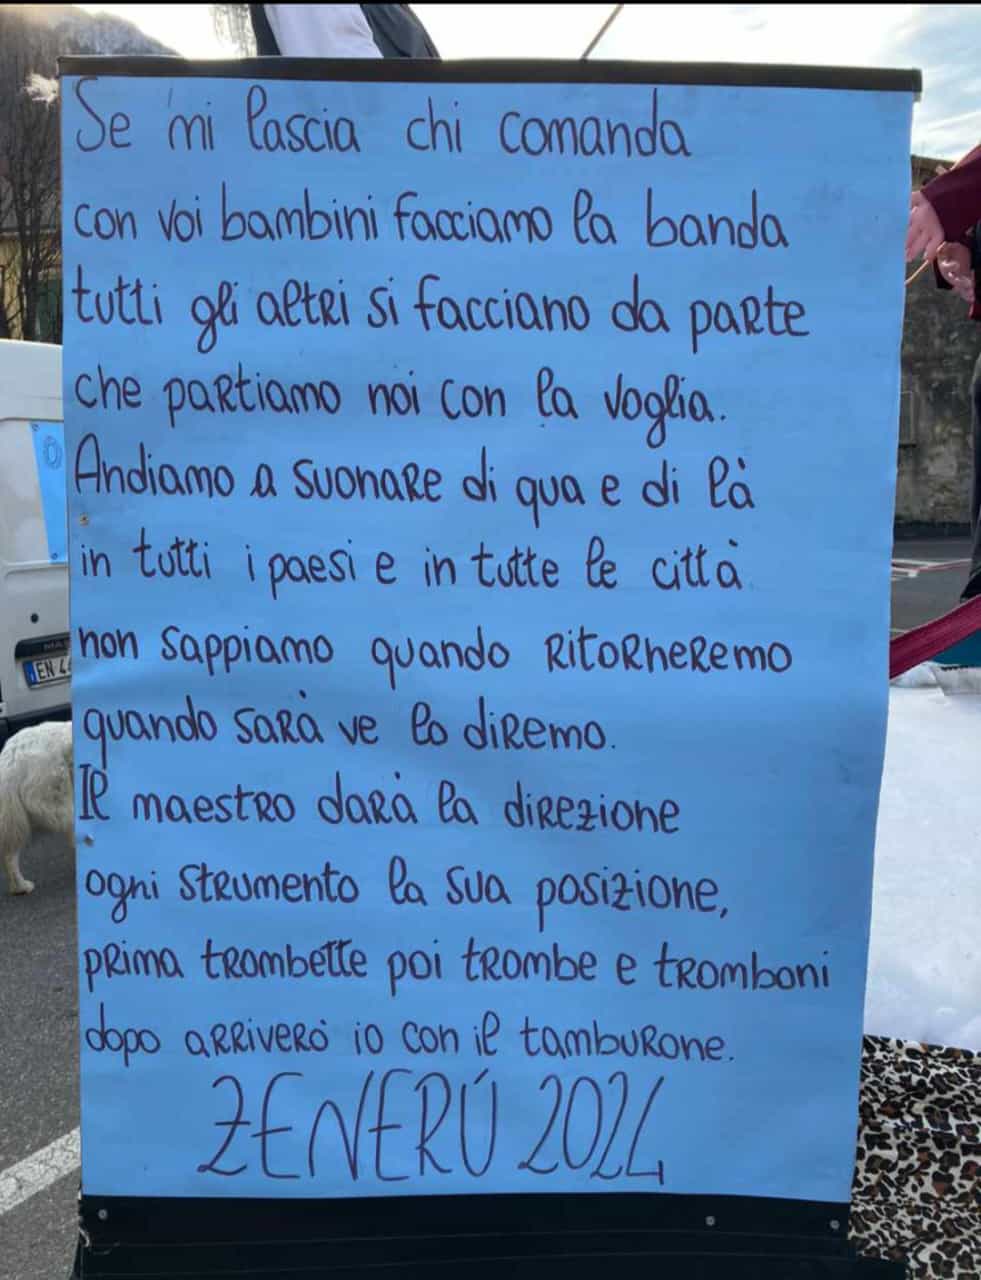 Se mi lascia chi comanda
con voi bambini facciamo la banda
tutti gli altri si facciano da parte
che partiamo noi con la voglia.
Andiamo a suonare di qua e di là
in tutti i paesi e in tutte le città
non sappiamo quando ritorneremo
quando sarà ve lo diremo.
Il maestro darà la direzione
ogni strumento la sua posizione,
prima trombette poi trombe e tromboni
dopo arriverò io con il tamburone.
ZENERÚ 2024
EN